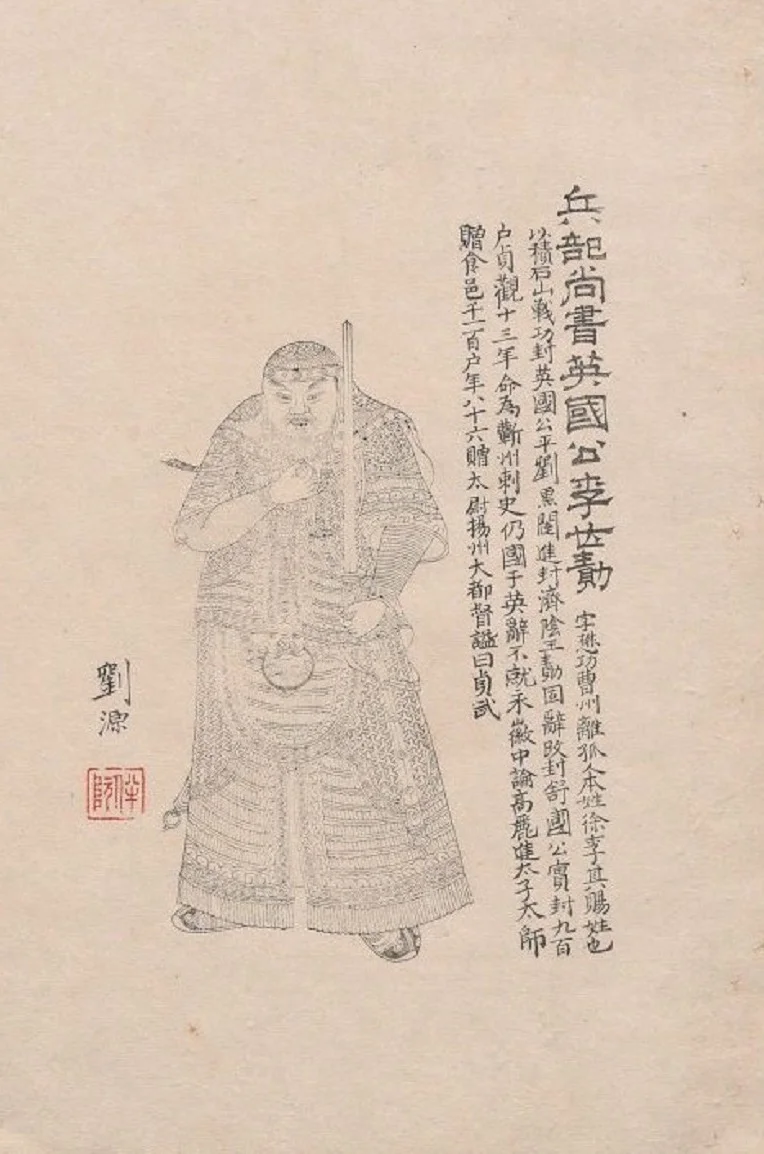 兵部尚書英國公李世勣
字懋功曹州離狐人本姓徐李其賜姓也
以積石山戰功封英國公平劉黑闥進封濟陰王勣固辭改封舒國公實封九百
户貞觀十三年命為蘄州刺史仍國于英辭不就永徽中論高麗進太子太師
贈食邑千一百户年八十六贈太尉揚州大都督謚曰貞武
劉源
伴阮